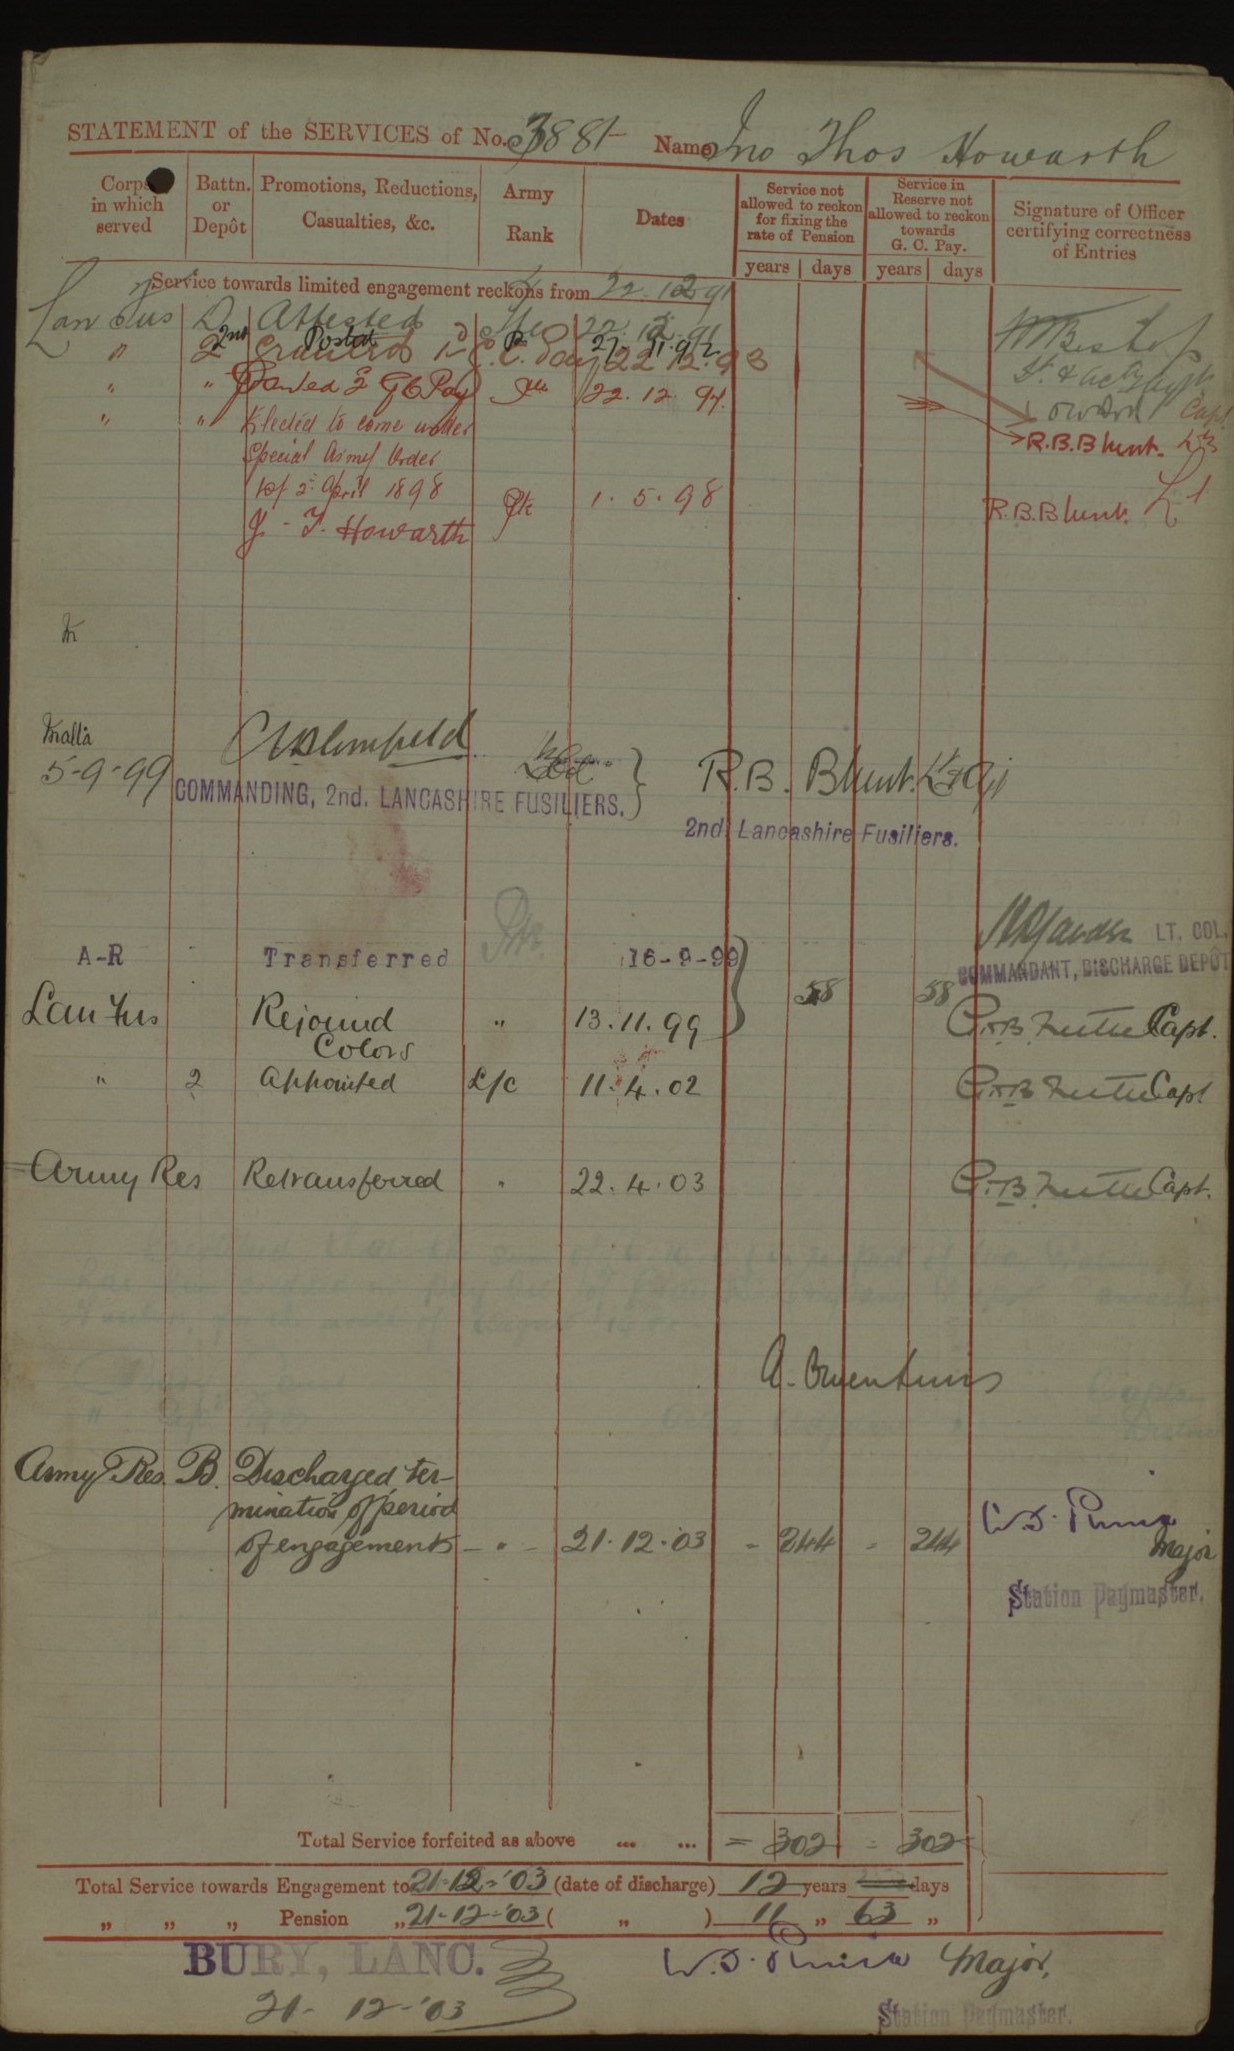 STATEMENT of the SERVICES of No. 3881 Name Jno Thos Howarth
Corps in which served
Battn. or Depôt
Promotions, Reductions, Casualties, &c.
Army Rank
Dates
Service not allowed to reckon for fixing the rate of Pension
years days
Service in Reserve not allowed to reckon towards G. C. Pay.
years days
Signature of Officer certifying correctness of Entries
Service towards limited engagement reckons from 22.12.91
Lan Fus D Attested 22.12.91
" 2nd Posted Pte 27.11.92
Granted 1st G.C. Pay 22 12.93
" " Granted 2 G C Pay Pte 22.12.94.
" " Elected to come under
Special Army Order
of 2nd April 1898 Pte 1.5.98
J. T. Howarth
R.B.Blunt. Lt
R.B.Blunt. Lt
Malta
5-9-99
COMMANDING, 2nd. LANCASHIRE FUSILIERS.
R.B. Blunt. Lt
2nd Lancashire Fusiliers.
LT. COL.
COMMANDANT, DISCHARGE DEPÔT
A-R Transferred Pte. 16-9-99
58 58
Lan Fus Rejoined " 13.11.99 Capt.
Colors
" 2 Appointed L/c 11.4.02 Capt.
Army Res Retransferred " 22.4.03 Capt.
Army Res. B. Discharged ter-
mination of period
of engagements - " - 21.12.03 - 244 - 244
Major
Station Paymaster.
Total Service forfeited as above ... ... = 302 = 302
Total Service towards Engagement to 21-12-'03 (date of discharge) 12 years days
" " " Pension " 21-12-'03 ( " ) 11 " 63 "
BURY, LANC.
21-12-'03
Major,
Station Paymaster.